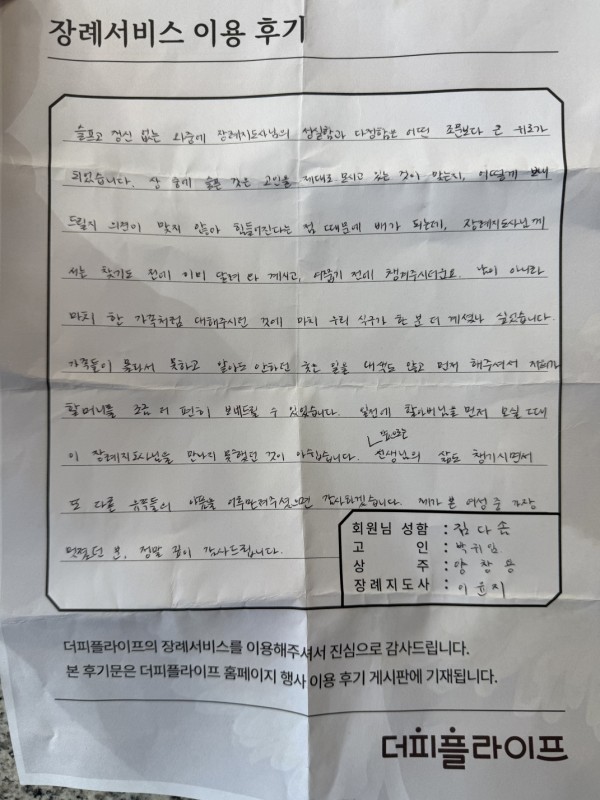 장례서비스 이용 후기
슬프고 정신 없는 와중에 장례지도사님의 성실함과 다정함은 어떤 조문보다 큰 위로가
되었습니다. 상 중에 슬픈 것은 고인을 제대로 모시고 있는 것이 맞는지, 어떻게 보내
드릴지 의견이 맞지 않아 힘들어진다는 점 때문에 배가 되는데, 장례지도사님께
서는 찾기도 전에 이미 달려 와 계시고, 여쭙기 전에 챙겨주시더군요. 남이 아니라
마치 한 가족처럼 대해주시던 것에 마치 우리 식구가 한 분 더 계셨나 싶었습니다.
가족들이 몰라서 못하고 알아도 안하던 궂은 일을 내색도 않고 먼저 해주셔서 저희가
할머니를 조금 더 편히 보내드릴 수 있었습니다. 일전에 할아버님을 먼저 모실 때
이 장례지도사님을 만나지 못했던 것이 아쉽습니다. 앞으로는 선생님의 삶도 챙기시면서
또 다른 유족들의 아픔을 어루만져주셨으면 감사하겠습니다. 제가 본 여성 중 가장
멋졌던 분, 정말 깊이 감사드립니다.
회원님 성함 : 김다솜
고 인 : 박귀임
상 주 : 양창용
장례지도사 : 이윤지
더피플라이프의 장례서비스를 이용해주셔서 진심으로 감사드립니다.
본 후기문은 더피플라이프 홈페이지 행사 이용 후기 게시판에 기재됩니다.
더피플라이프